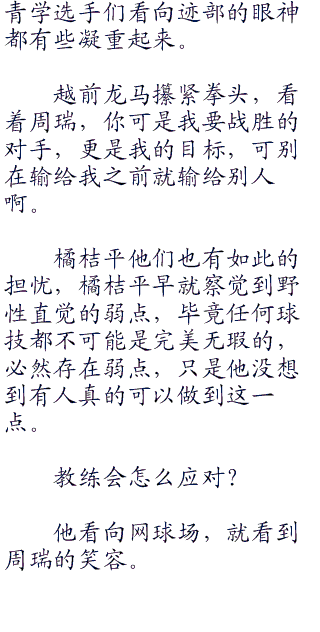 青学选手们看向迹部的眼神
都有些凝重起来。
越前龙马攥紧拳头，看
着周瑞，你可是我要战胜的
对手，更是我的目标，可别
在输给我之前就输给别人
啊。
橘桔平他们也有如此的
担忧，橘桔平早就察觉到野
性直觉的弱点，毕竟任何球
技都不可能是完美无瑕的，
必然存在弱点，只是他没想
到有人真的可以做到这一
点。
教练会怎么应对？
他看向网球场，就看到
周瑞的笑容。